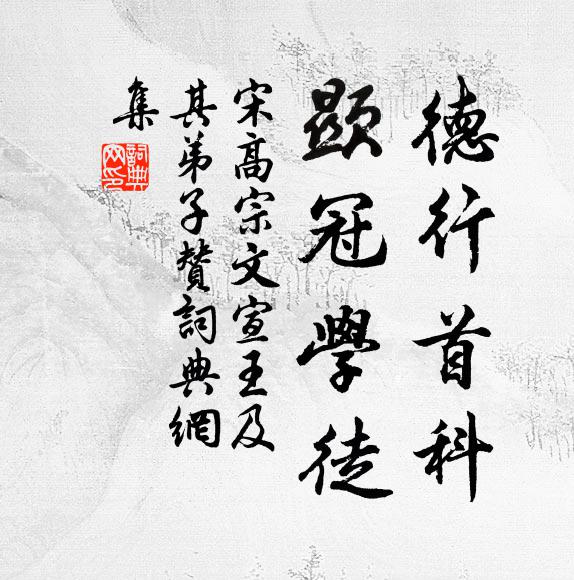 德行首科
顯冠學徒
宋高宗文宣王及
其弟子贊詞典網
集
詞典
网印